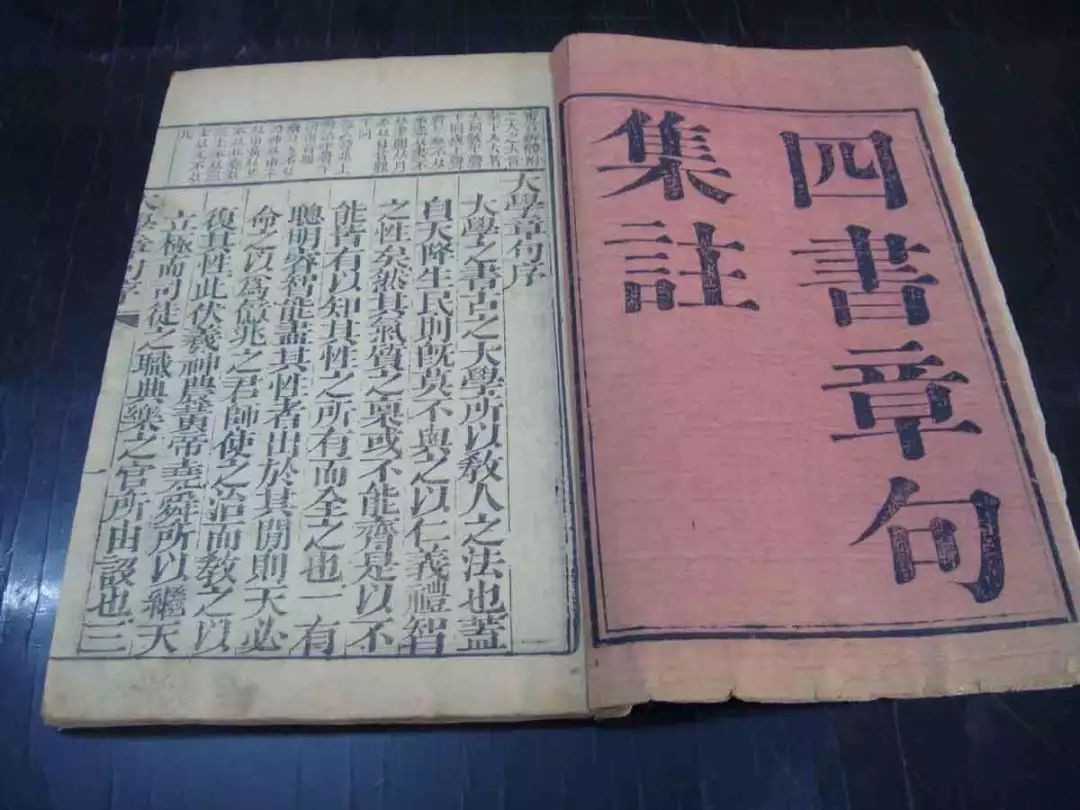 四書章句
集註
大學章句序
大學之書古之大學所以教人之法也蓋
自天降生民則既莫不與之以仁義禮智
之性矣然其氣質之稟或不能齊是以不
能皆有以知其性之所有而全之也一有
聰明睿智能盡其性者出於其閒則天必
命之以為億兆之君師使之治而教之以
復其性此伏羲神農黃帝堯舜所以繼天
立極而司徒之職典樂之官所由設也三
大學章句序
一